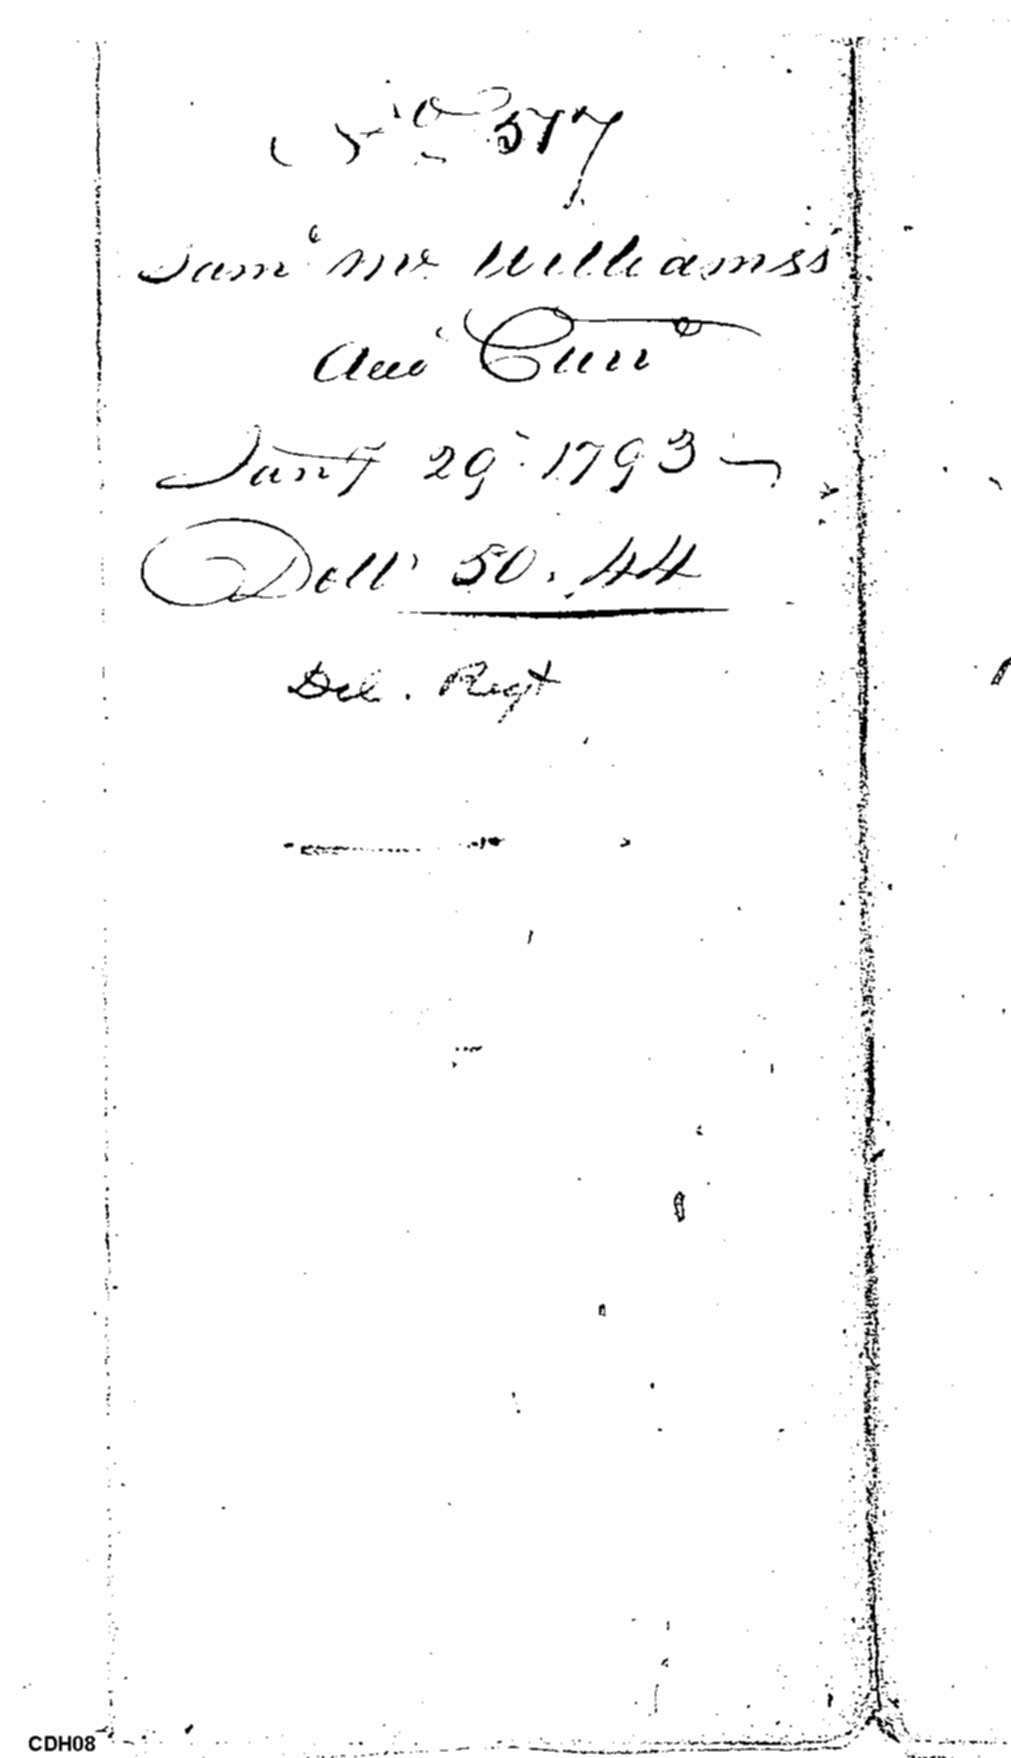 No 577
Saml Mc Williams's
Acco Curr
Jany 29. 1793
Dolls 50.44
Del. Regt
CDH08